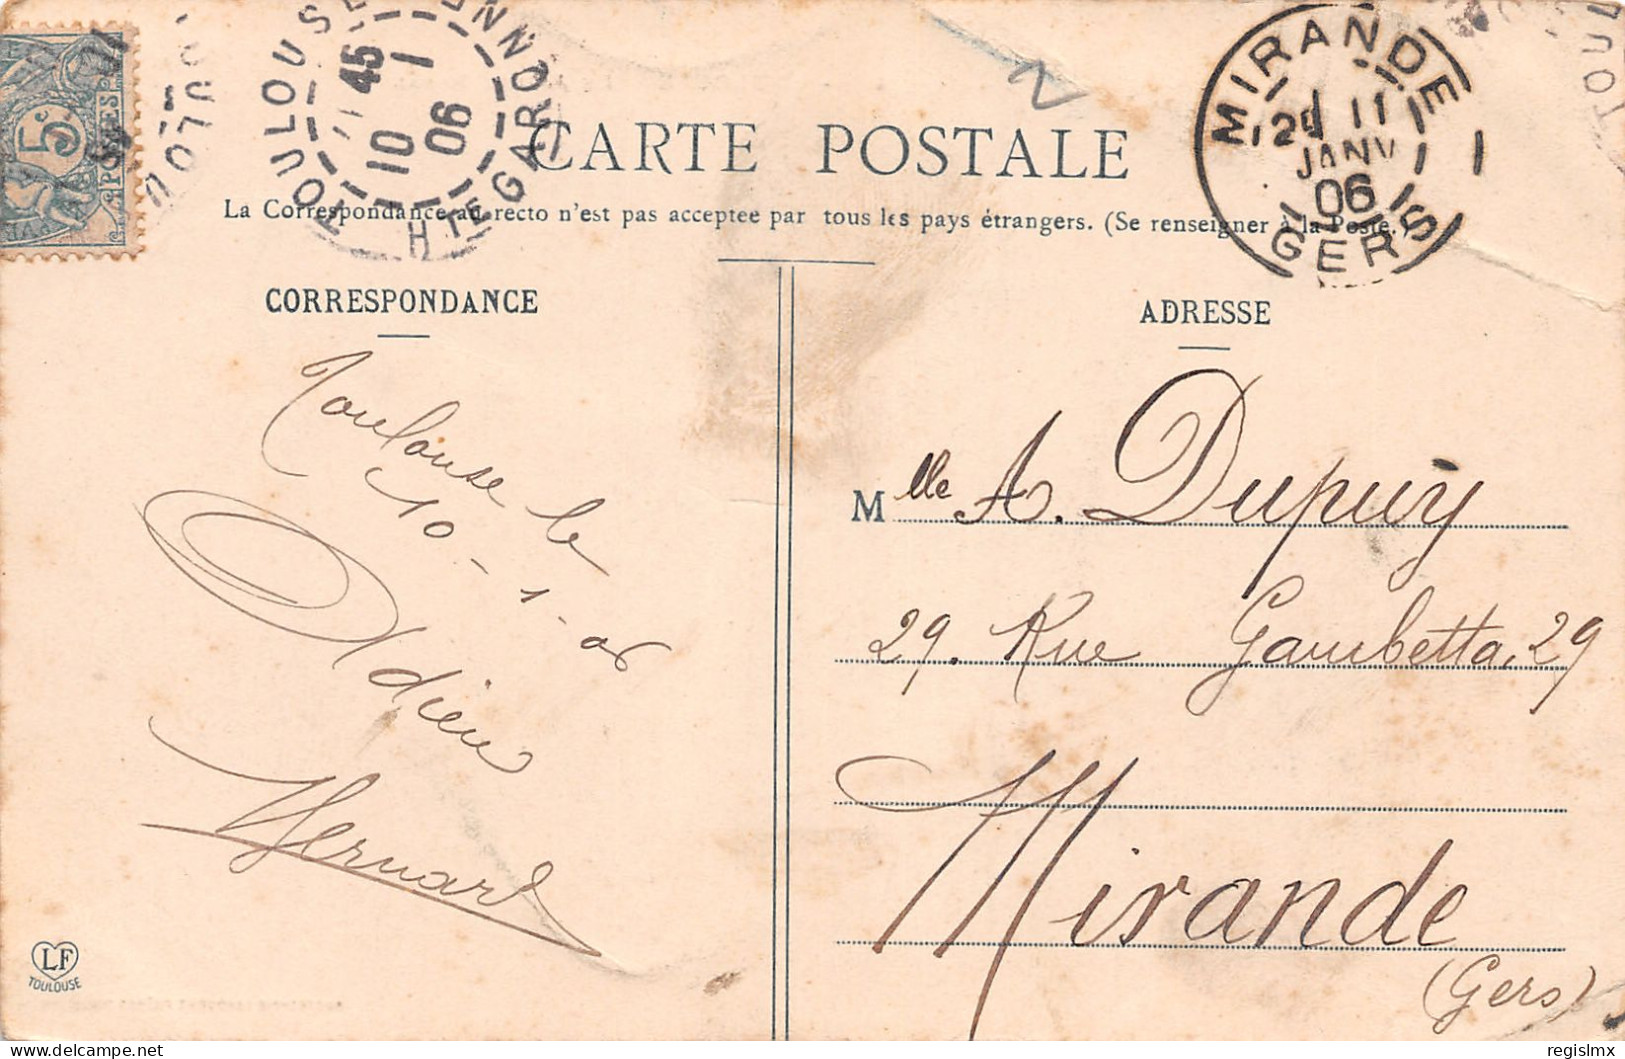 5c
POSTES
TOULOUSE
45
10 1
06
HTE GARONNE
MIRANDE
11
JANV
06
GERS
CARTE POSTALE
La Correspondance au recto n'est pas acceptee par tous les pays étrangers. (Se renseigner à la Poste.)
CORRESPONDANCE
Toulouse le
10-1-06
Adieu
LF
TOULOUSE
ADRESSE
Mlle A. Dupuy
29. Rue Gambetta, 29
Mirande
(Gers)
regislmx